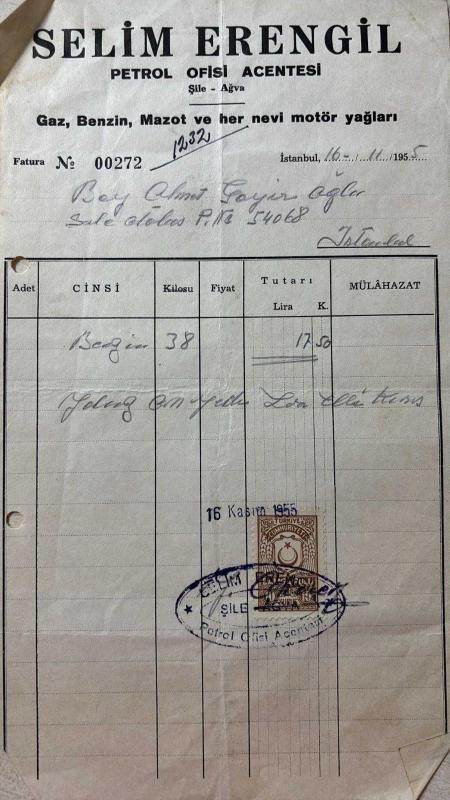 SELİM ERENGİL
PETROL OFİSİ ACENTESİ
Şile - Ağva
Gaz, Benzin, Mazot ve her nevi motör yağları
1232
Fatura № 00272
İstanbul, 16 - / 11 / 1955
Bay Ahmet
54068
İstanbul
Adet CİNSİ Kilosu Fiyat Tutarı MÜLÂHAZAT
Lira K.
Benzin 38 17 50
Yalnız On yedi Lira elli Kuruş
16 Kasım 1955
TÜRKİYE
CUMHURİYETİ
SELİM EREN
ŞİLE AĞVA
Petrol Ofisi Acentası